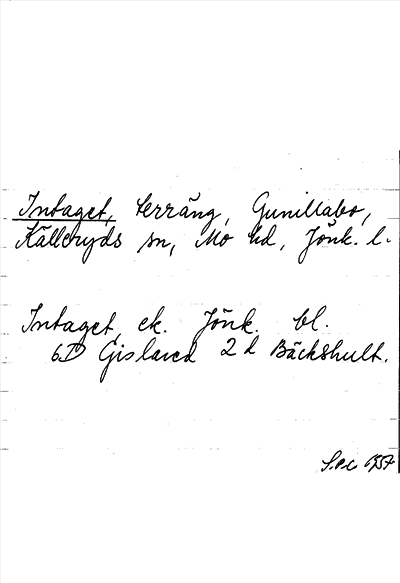 Intaget, terräng, Gunillabo,
Källeryds sn, Mo hd, Jönk. l.
Intaget ek. Jönk. bl.
6D Gislaved 2d Bäckshult.